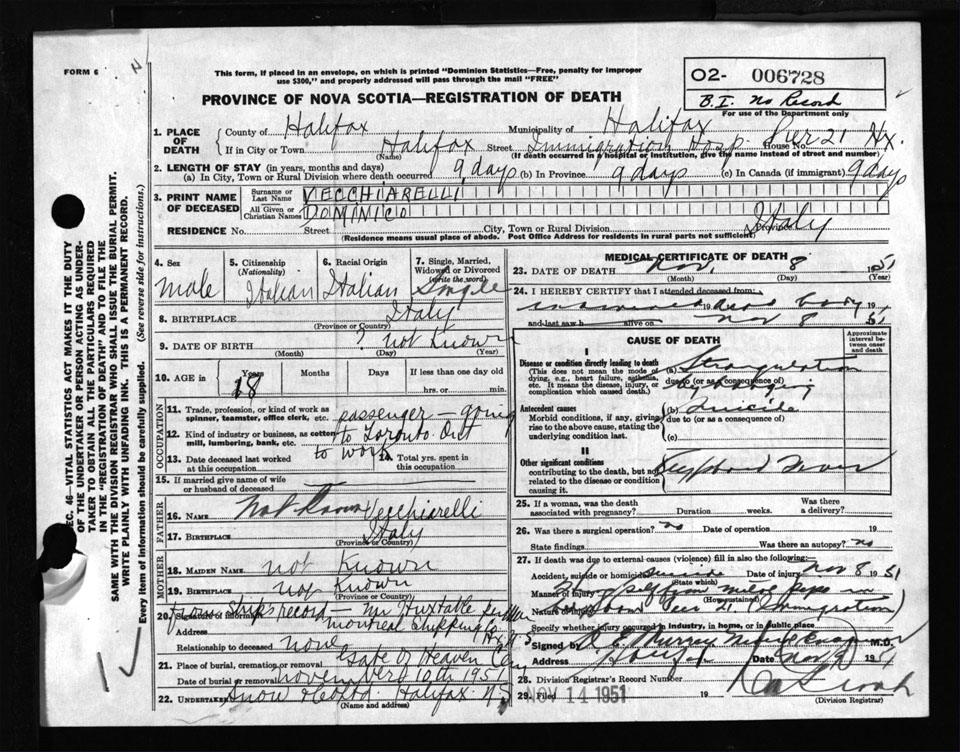 FORM 6
This form, if placed in an envelope, on which is printed "Dominion Statistics—Free, penalty for improper
use $300," and properly addressed will pass through the mail "FREE"
O2- 006728
B.I. No Record
For use of the Department only
PROVINCE OF NOVA SCOTIA—REGISTRATION OF DEATH
1. PLACE OF DEATH
County of Halifax Municipality of Halifax
If in City or Town Halifax Street Immigration Hosp. House No. Pier 21 Hx.
(Name) (If death occurred in a hospital or institution, give the name instead of street and number)
2. LENGTH OF STAY (in years, months and days)
(a) In City, Town or Rural Division where death occurred 9 days (b) In Province 9 days (c) In Canada (if immigrant) 9 days
3. PRINT NAME OF DECEASED
Surname or Last Name VECCHIARELLI
All Given or Christian Names DOMINICO
RESIDENCE No. Street City, Town or Rural Division Italy
(Residence means usual place of abode. Post Office Address for residents in rural parts not sufficient)
4. Sex 5. Citizenship (Nationality) 6. Racial Origin 7. Single, Married, Widowed or Divorced (write the word)
male Italian Italian Single
8. BIRTHPLACE Italy
(Province or Country)
9. DATE OF BIRTH ? not Known
(Month) (Day) (Year)
10. AGE in Years Months Days If less than one day old
18 hrs. or min.
OCCUPATION
11. Trade, profession, or kind of work as spinner, teamster, office clerk, etc. passenger — going
12. Kind of industry or business, as cotton mill, lumbering, bank, etc. to Toronto Ont
13. Date deceased last worked at this occupation to work 14. Total yrs. spent in this occupation
15. If married give name of wife or husband of deceased
FATHER
16. NAME Not Known Vecchiarelli
17. BIRTHPLACE Italy
(Province or Country)
MOTHER
18. MAIDEN NAME not Known
19. BIRTHPLACE not Known
(Province or Country)
20. Signature of informant from ship's record — Mr Huxtable
Address Montreal Shipping Hx N S
Relationship to deceased none
21. Place of burial, cremation or removal Gate of Heaven Cem
Date of burial or removal november 10th 1951
22. UNDERTAKER Snow & Co Ltd. Halifax N S
(Name and address)
MEDICAL CERTIFICATE OF DEATH
23. DATE OF DEATH Nov. 8 1951
(Month) (Day) (Year)
24. I HEREBY CERTIFY that I attended deceased from:
examined 19 dead body 19
and last saw h alive on Nov 8 51
CAUSE OF DEATH
Approximate interval between onset and death
I
Disease or condition directly leading to death
(This does not mean the mode of dying, e.g., heart failure, asthenia, etc. It means the disease, injury, or complication which caused death.)
(a) Strangulation
due to (or as a consequence of)
by hanging
Antecedent causes
Morbid conditions, if any, giving rise to the above cause, stating the underlying condition last.
(b) Suicide
due to (or as a consequence of)
(c)
II
Other significant conditions
contributing to the death, but not related to the disease or condition causing it.
Typhoid Fever
25. If a woman, was the death associated with pregnancy? Duration weeks. Was there a delivery?
26. Was there a surgical operation? no Date of operation 19
State findings Was there an autopsy? no
27. If death was due to external causes (violence) fill in also the following:
Accident, suicide or homicide? Suicide Date of injury Nov 8 1951
(State which)
Manner of injury Hung self from water pipe in
(How sustained)
Nature of injury Pier 21 (Immigration)
Specify whether injury occurred in industry, in home, or in public place
Signed by Murray Medical Examiner M.D.
Address Halifax Date Nov 9 1951
28. Division Registrar's Record Number
29. Filed NOV 14 1951 19
(Division Registrar)
SEC. 46—VITAL STATISTICS ACT MAKES IT THE DUTY
OF THE UNDERTAKER OR PERSON ACTING AS UNDER-
TAKER TO OBTAIN ALL THE PARTICULARS REQUIRED
IN THE "REGISTRATION OF DEATH" AND TO FILE THE
SAME WITH THE DIVISION REGISTRAR WHO SHALL ISSUE THE BURIAL PERMIT.
WRITE PLAINLY WITH UNFADING INK. THIS IS A PERMANENT RECORD.
Every item of information should be carefully supplied. (See reverse side for instructions.)